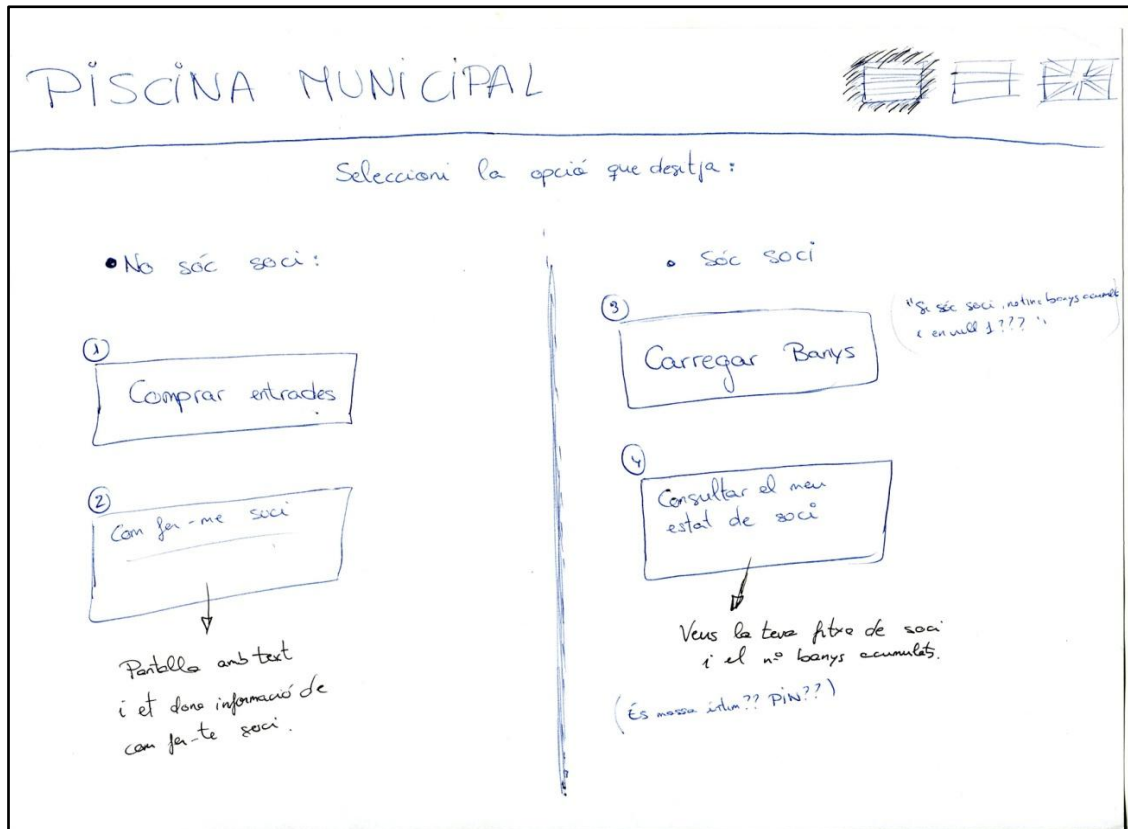 PISCINA MUNICIPAL
Seleccioni la opció que desitja:
• No sóc soci:
①
Comprar entrades
②
Com fer-me soci
Pantalla amb text
i et dona informació de
com fer-te soci.
• Sóc soci
③
Carregar Banys
"Si sóc soci, no tinc banys acumulats
i en vull 1???"
④
Consultar el meu
estat de soci
Veus la teva fitxa de soci
i el nº banys acumulats.
(És massa íntim?? PIN??)